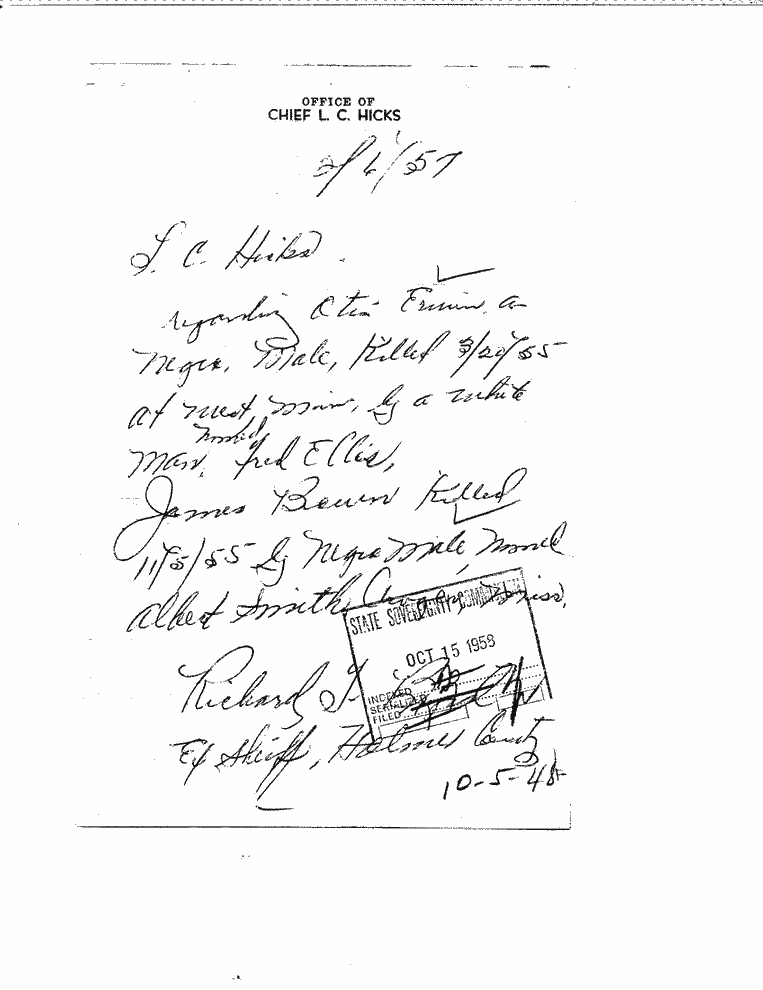 OFFICE OF
CHIEF L. C. HICKS
2/6/57
L. C. Hicks.
regarding Otis Erwin, a
Negro, Male, Killed 3/20/55
at West, Miss, by a white
named
Man, Fred Ellis,
James Brown Killed
11/5/55 by Negro Male, Named
Albert Smith, Miss,
STATE SOVEREIGNTY COMMISSION
OCT 15 1958
INDEXED
SERIALIZED
FILED
Richard
Ex Sheriff, Holmes County
10-5-48